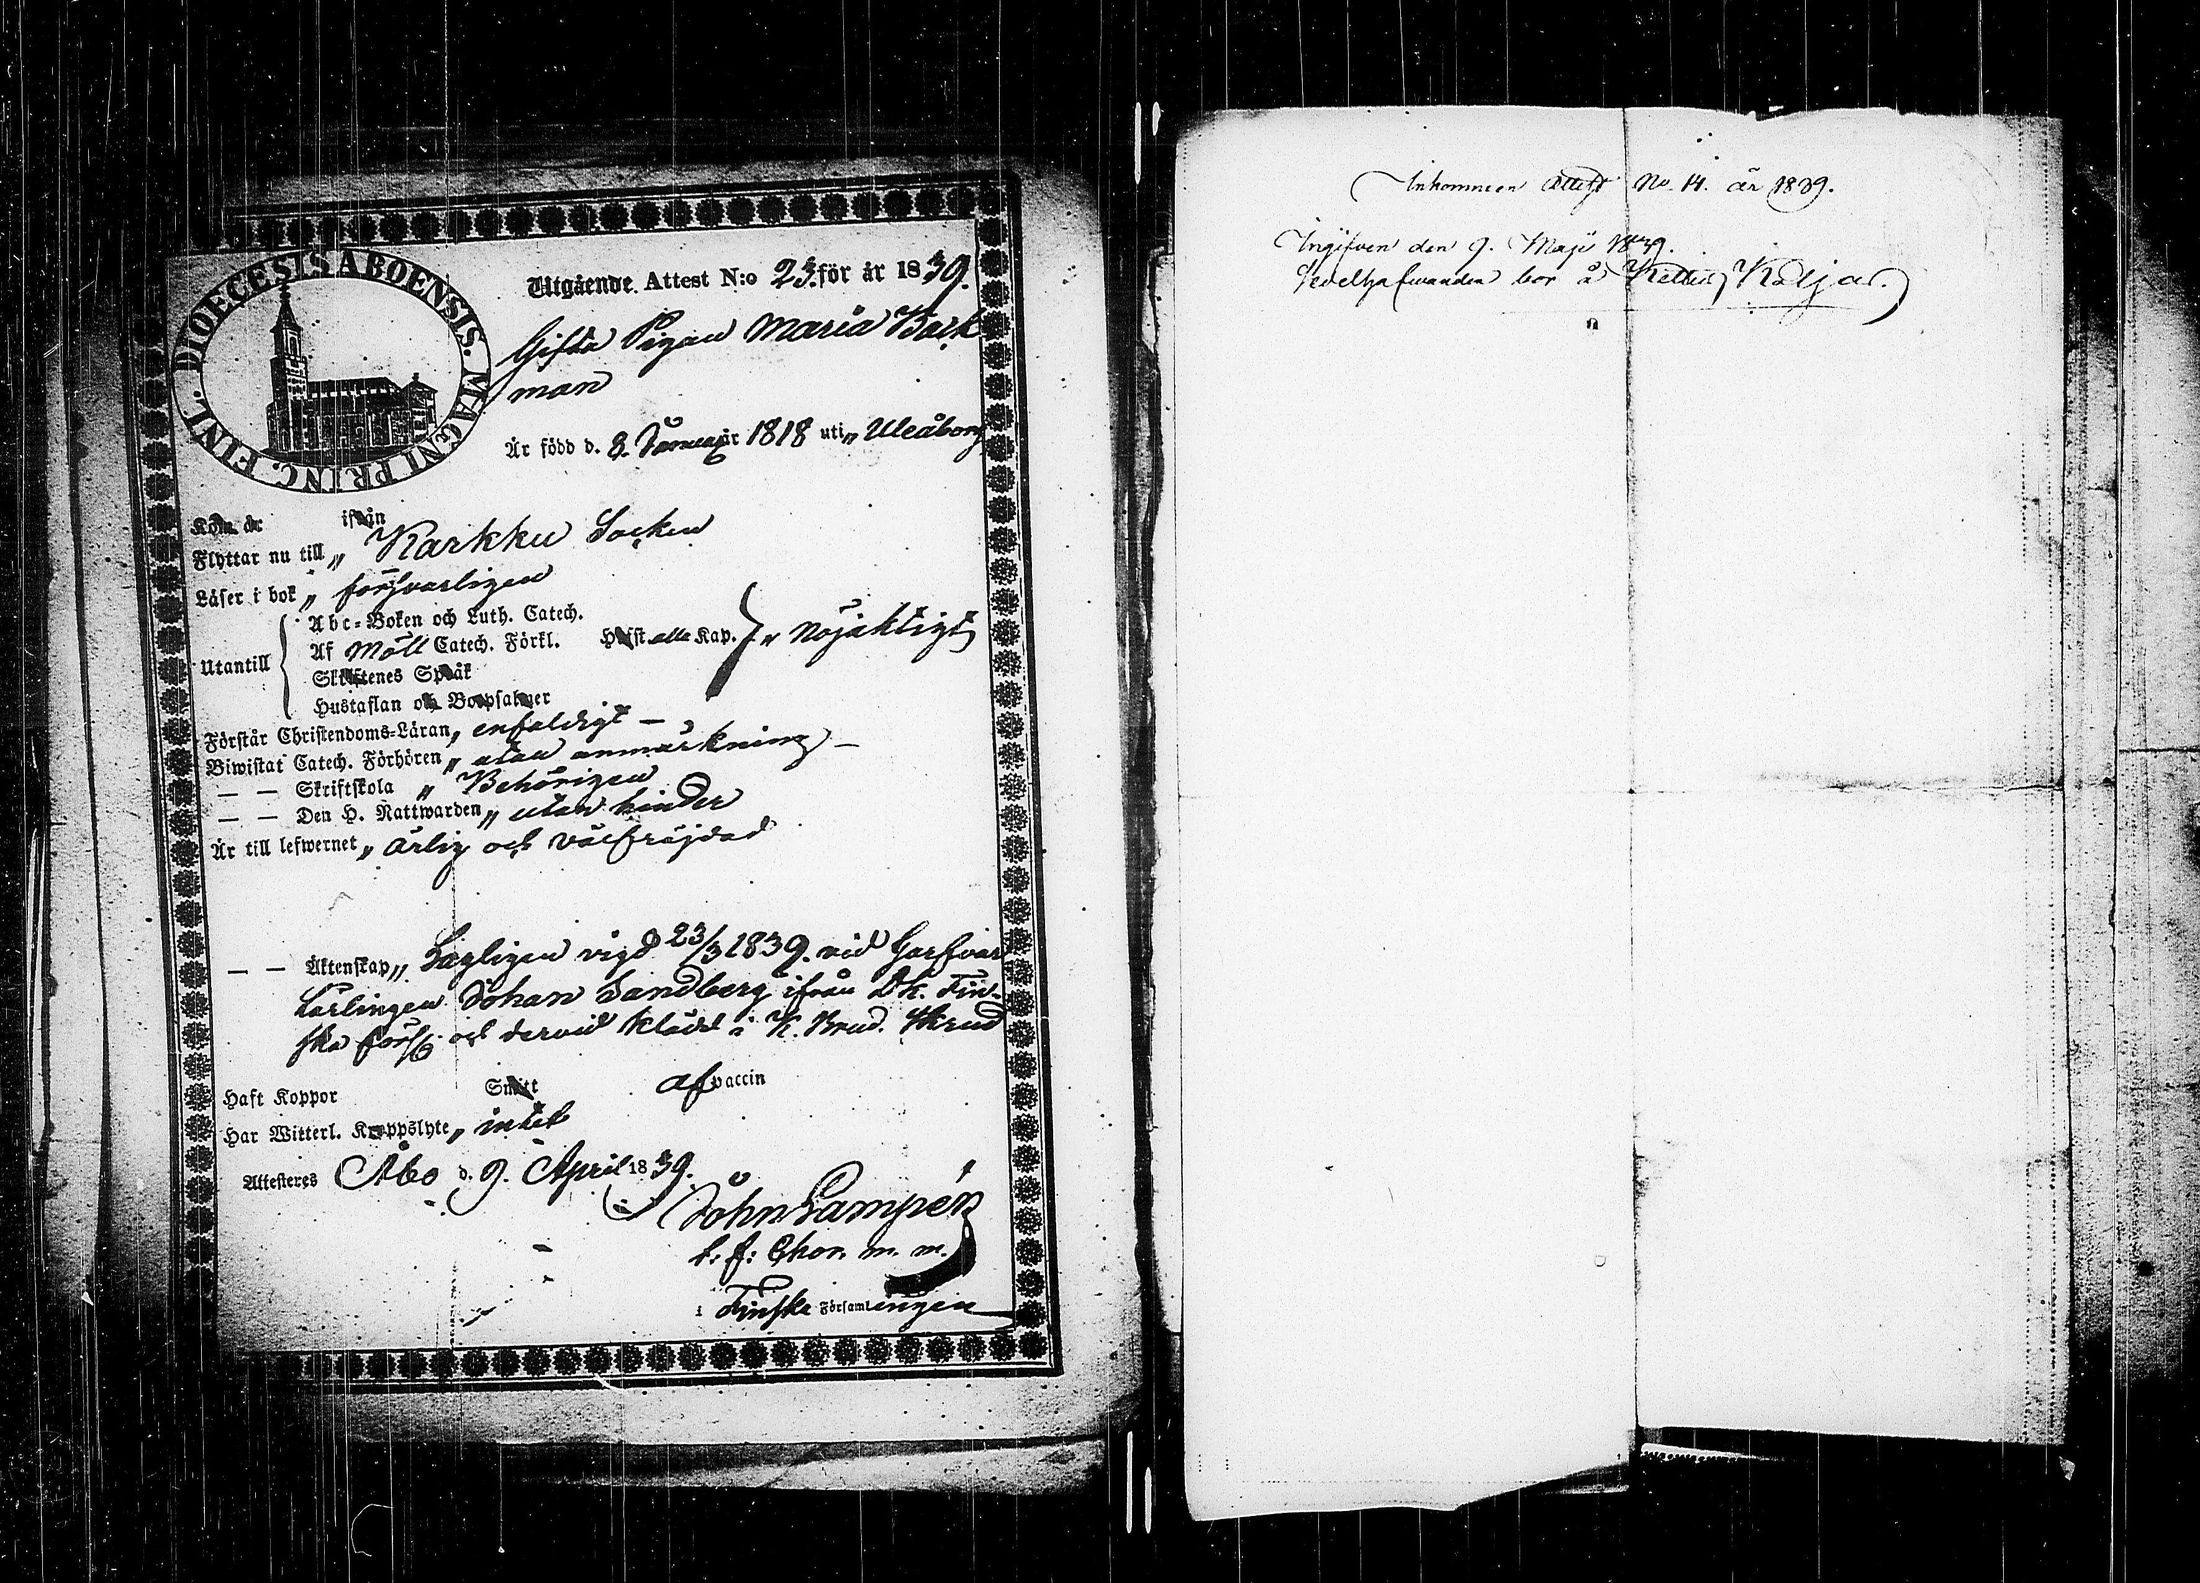 DIOECESIS ABOENSIS. MAGNI PRINC. FINL.
Utgående Attest N:o 23. för år 1839.
Gifta Pigan Maria Back
man
Är född d. 8. Januar 1818 uti Uleåborg
Kom år ifrån
Flyttar nu till Karkku Socken
Läser i bok försvarligen
Utantill
Abc-Boken och Luth. Catech.
Af Möll Catech. Förkl. Hufst. alla Kap. nöjaktigt
Skriftenes Språk
Hustaflan och Botpsalmer
Förstår Christendoms-Läran, enfaldigt —
Biwistat Catech. Förhören utan anmärkning —
— — Skriftskola Behörigen
— — Den H. Nattwarden utan hinder
Är till lefwernet, ärlig och välfräjdad
— — Äktenskap Lagligen vigd 23/3 1839. vid Garfvar
Lärlingen Johan Sandberg ifrån Dk. Fin-
ska förs. och dervid klädd i K. Brud. Skrud
Haft Koppor Smitt af vaccin
Har Witterl. Kroppslyte, intet
Attesteras Åbo d. 9. April 1839.
John Lampén
t: f: Chor. m. m.
i Finska Församlingen
Inkommen Attest No. 14. år 1839.
Ingifven den 9. Maji 1839.
bor å Kättjas.